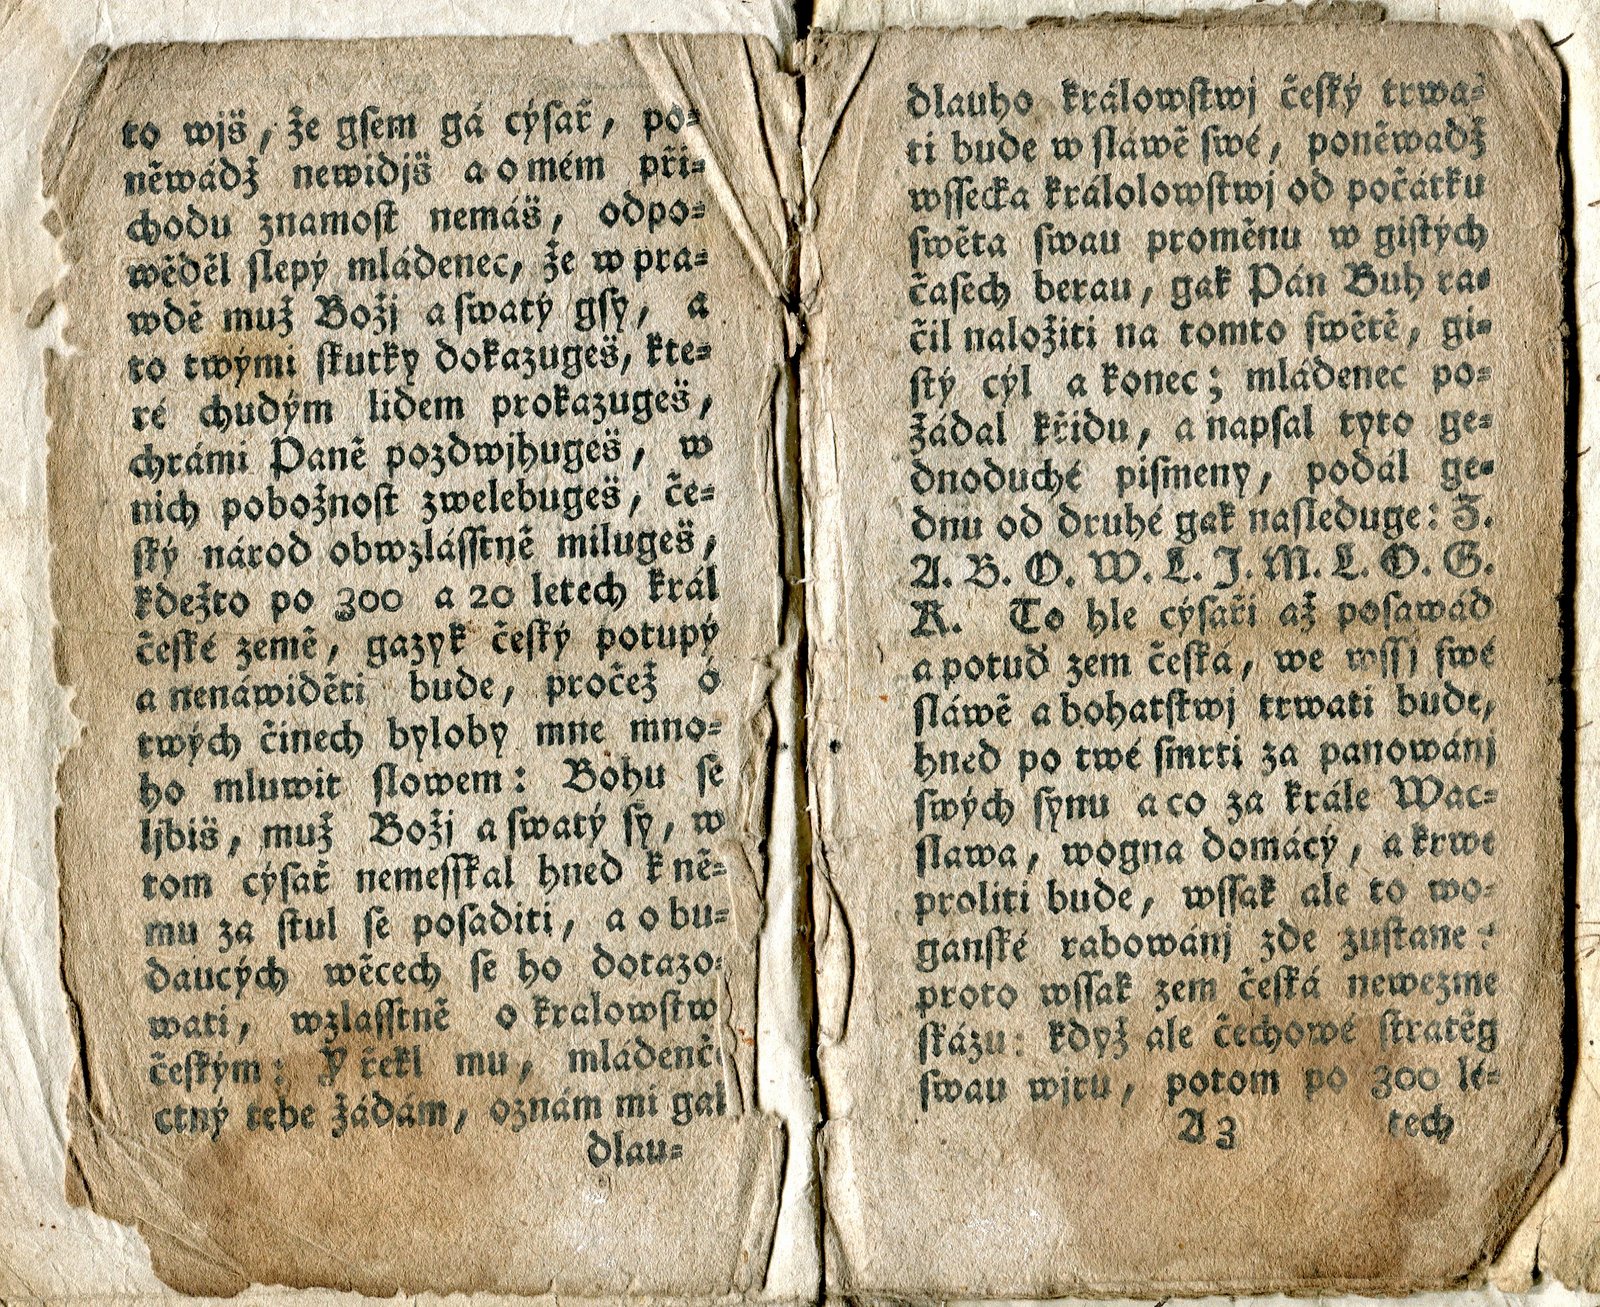 to wjš, že gsem gá cýsař, po=
něwádž newidjš a o mém při=
chodu znamost nemáš, odpo=
wěděl slepý mládenec, že w pra=
wdě muž Božj a swatý gsy, a
to twými skutky dokazugeš, kte=
ré chudým lidem prokazugeš,
chrámi Paně pozdwjhugeš, w
nich pobožnost zwelebugeš, če=
ský národ obwzlásstně milugeš,
kdežto po 300 a 20 letech král
české země, gazyk český potupý
a nenáwiděti bude, pročež ó
twých činech byloby mne mno=
ho mluwit slowem: Bohu se
ljbiš, muž Božj a swatý sy, w
tom cýsař nemesskal hned k ně=
mu za stul se posaditi, a o bu=
daucých wěcech se ho dotazo=
wati, wzlasstně o kralowstw
českým: Y řekl mu, mládenče
ctný tebe žádám, oznám mi gak
dlau=
dlauho králowstwj český trwa=
ti bude w sláwě swé, poněwadž
wssecka králolowstwj od počátku
swěta swau proměnu w gistých
časech berau, gak Pán Buh ra=
čil naložiti na tomto swětě, gi=
stý cýl a konec; mládenec po=
žádal křidu, a napsal tyto ge=
dnoduché pismeny, podál ge=
dnu od druhé gak nasleduge: Z.
A. B. O. W. L. J. M. L. O. G.
K. To hle cýsaři až posawád
a potud zem česká, we wssj swé
sláwě a bohatstwj trwati bude,
hned po twé smrti za panowánj
swých synu a co za krále Wac=
slawa, wogna domácý, a krwe
proliti bude, wssak ale to wo=
ganské rabowánj zde zustane:
proto wssak zem česká newezme
skázu: když ale čechowé stratěg
swau wjru, potom po 300 lé=
A3 tech